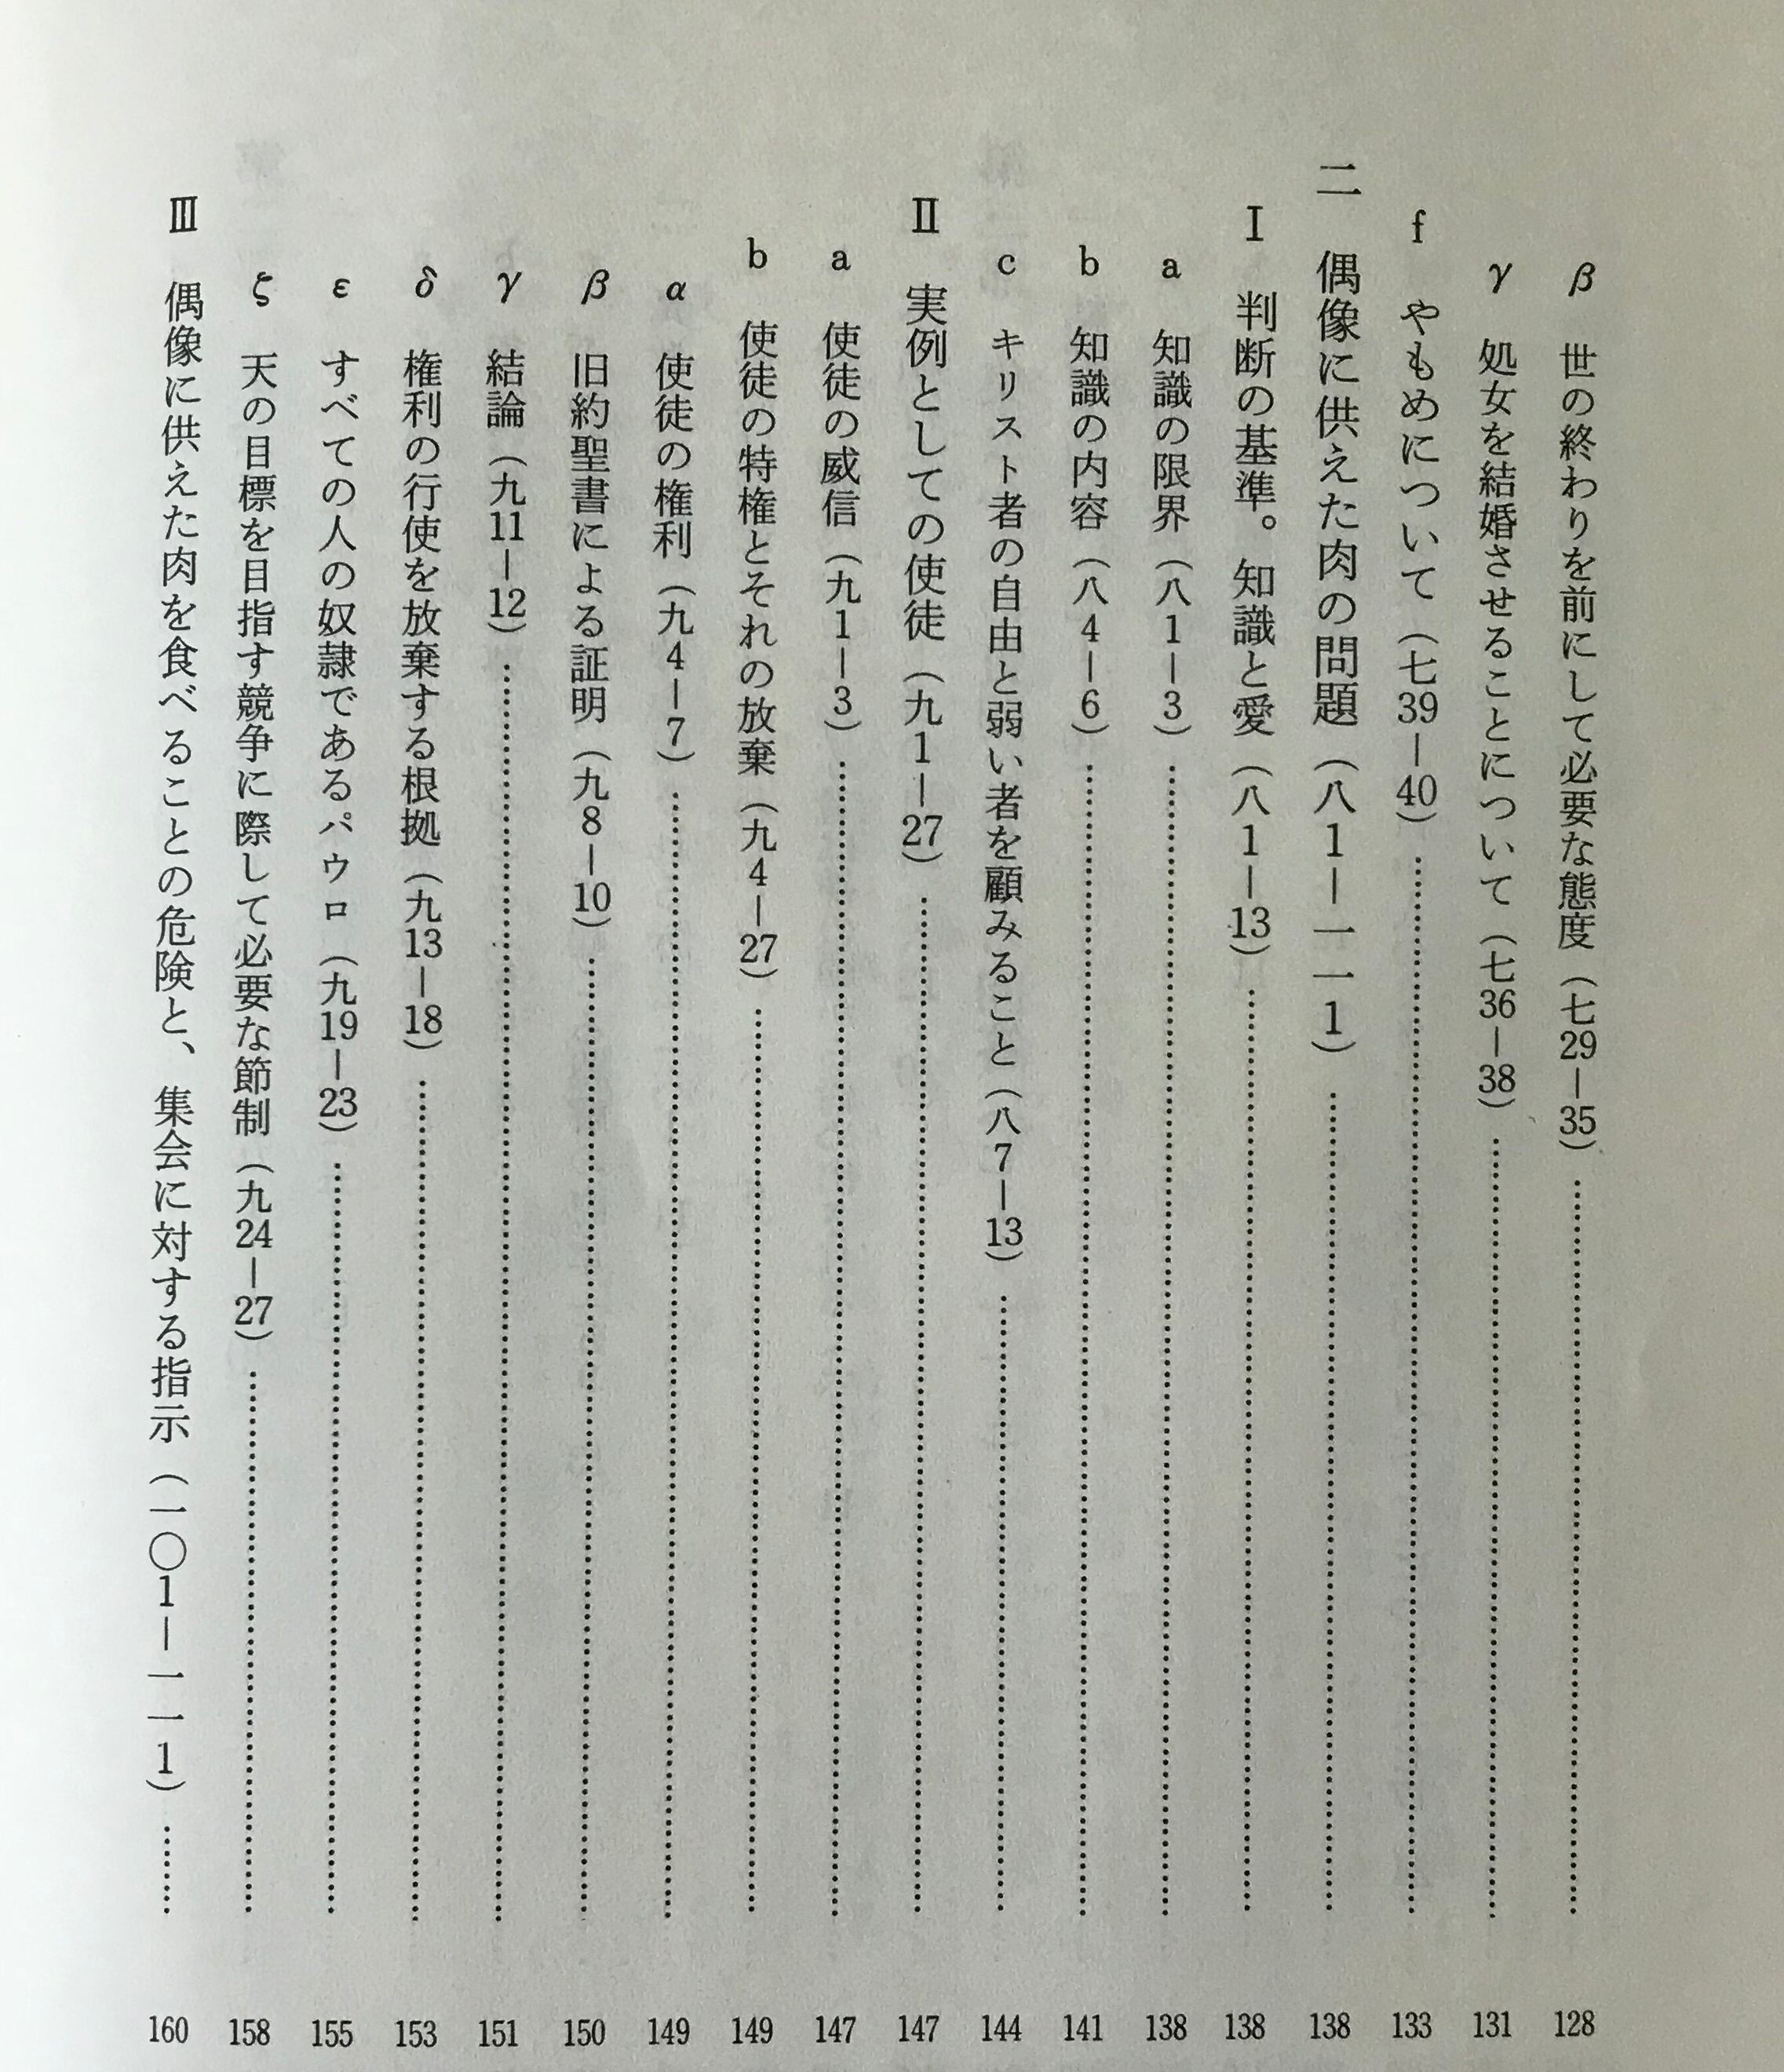 β 世の終わりを前にして必要な態度(七29―35)……128
γ 処女を結婚させることについて(七36―38)……131
f やもめについて(七39―40)……133
二 偶像に供えた肉の問題(八1―一一1)……138
Ⅰ 判断の基準。知識と愛(八1―13)……138
a 知識の限界(八1―3)……138
b 知識の内容(八4―6)……141
c キリスト者の自由と弱い者を顧みること(八7―13)……144
Ⅱ 実例としての使徒(九1―27)……147
a 使徒の威信(九1―3)……147
b 使徒の特権とそれの放棄(九4―27)……149
α 使徒の権利(九4―7)……149
β 旧約聖書による証明(九8―10)……150
γ 結論(九11―12)……151
δ 権利の行使を放棄する根拠(九13―18)……153
ε すべての人の奴隷であるパウロ(九19―23)……155
ζ 天の目標を目指す競争に際して必要な節制(九24―27)……158
Ⅲ 偶像に供えた肉を食べることの危険と、集会に対する指示(一〇1―一一1)……160